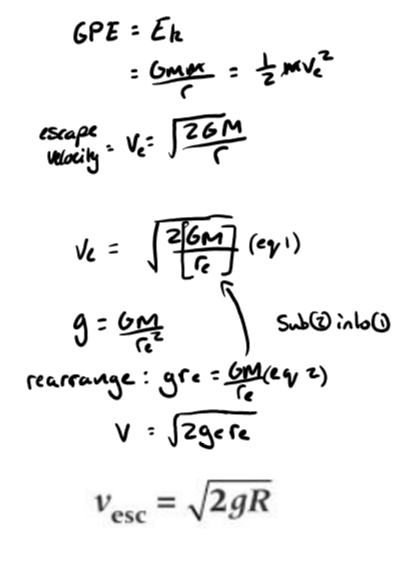 GPE = Ek
= GMm/r = 1/2 mve²
escape velocity = Ve = √(2GM/r)
Ve = √(2[GM/re]) (eq 1)
g = GM/re²
Sub(2) into(1)
rearrange : gre = GM/re (eq 2)
V = √(2gere)
vesc = √(2gR)